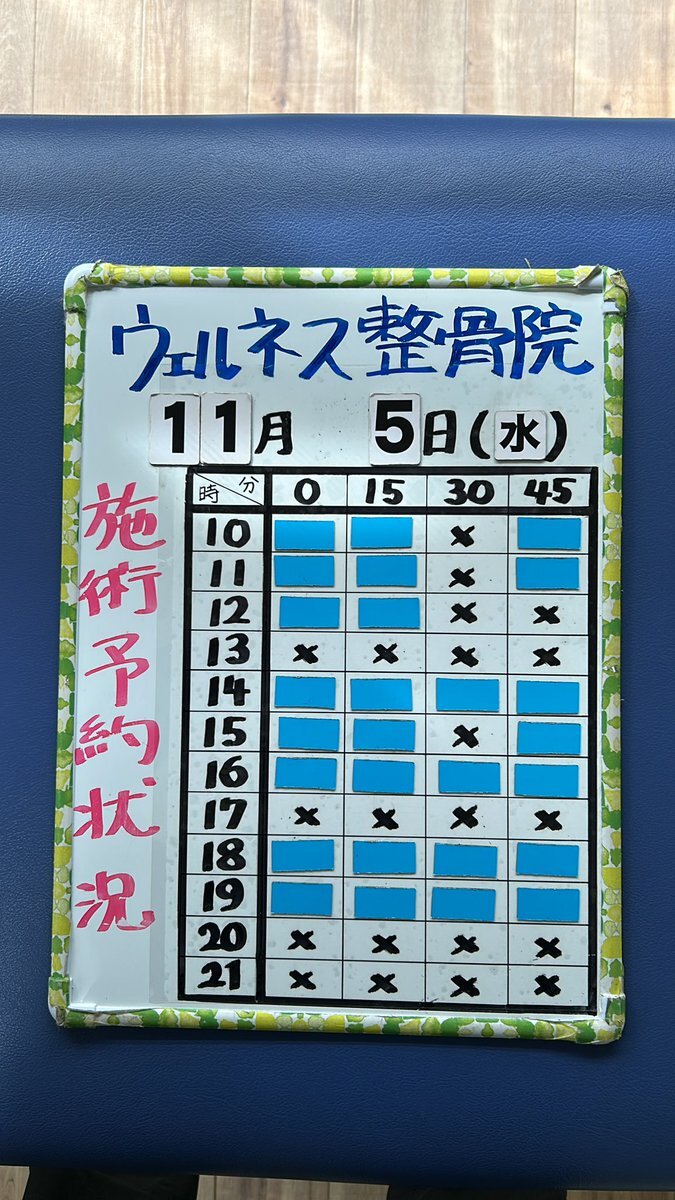 ウェルネス整骨院
11月 5日(水)
施術予約状況
時 分 0 15 30 45
10 ×
11 ×
12 × ×
13 × × × ×
14
15 ×
16
17 × × × ×
18
19
20 × × × ×
21 × × × ×